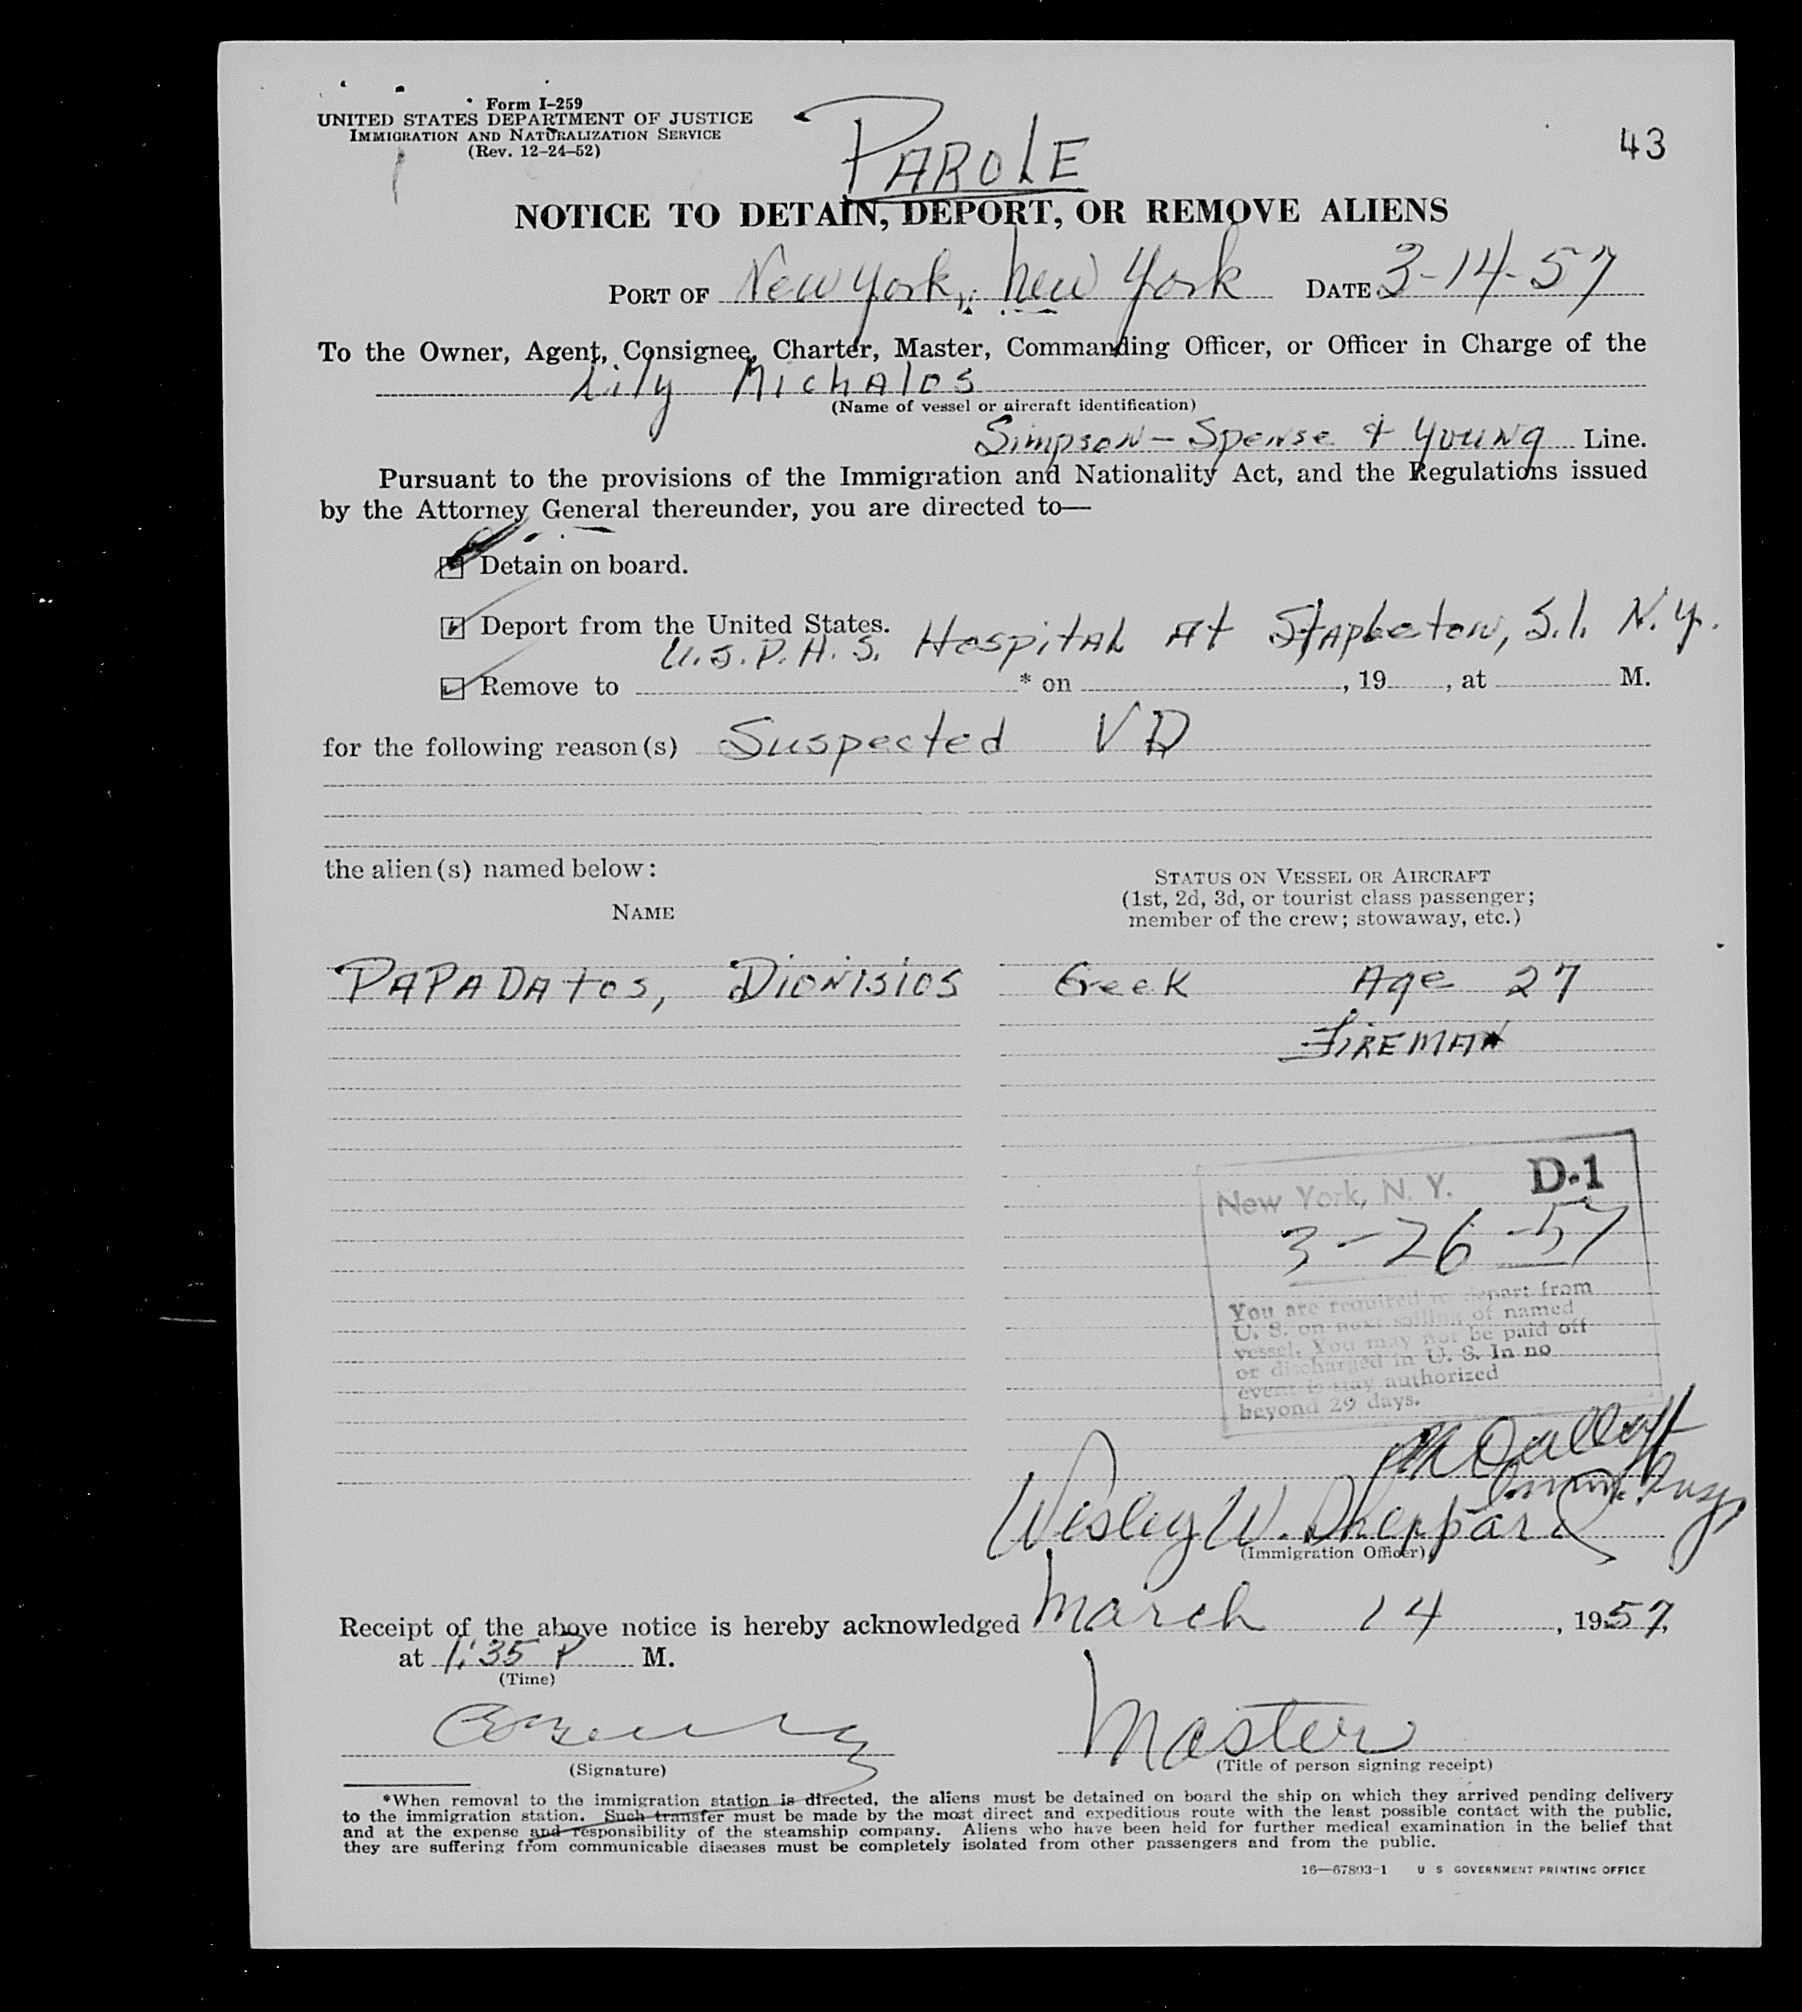 Form I-259
UNITED STATES DEPARTMENT OF JUSTICE
IMMIGRATION AND NATURALIZATION SERVICE
(Rev. 12-24-52)
PAROLE
43
NOTICE TO DETAIN, DEPORT, OR REMOVE ALIENS
PORT OF New York, New York DATE 3-14-57
To the Owner, Agent, Consignee, Charter, Master, Commanding Officer, or Officer in Charge of the
Lily Michalos
(Name of vessel or aircraft identification)
Simpson - Spense + Young Line.
Pursuant to the provisions of the Immigration and Nationality Act, and the Regulations issued
by the Attorney General thereunder, you are directed to—
Detain on board.
Deport from the United States.
U.S.P.H.S. Hospital At Stapleton, S.I. N.Y.
Remove to * on , 19 , at M.
for the following reason(s) Suspected VD
the alien(s) named below:
NAME
STATUS ON VESSEL OR AIRCRAFT
(1st, 2d, 3d, or tourist class passenger;
member of the crew; stowaway, etc.)
PAPADAtos, Dionisios Greek Age 27
FIREMAN
New York, N. Y. D-1
3-26-57
You are required to depart from
U. S. on next sailing of named
vessel. You may not be paid off
or discharged in U. S. In no
event is stay authorized
beyond 29 days.
Immig. Insp
Wesley W. Sheppard
(Immigration Officer)
Receipt of the above notice is hereby acknowledged March 14, 1957,
at 1:35 P M.
(Time)
Master
(Signature)
(Title of person signing receipt)
*When removal to the immigration station is directed, the aliens must be detained on board the ship on which they arrived pending delivery
to the immigration station. Such transfer must be made by the most direct and expeditious route with the least possible contact with the public,
and at the expense and responsibility of the steamship company. Aliens who have been held for further medical examination in the belief that
they are suffering from communicable diseases must be completely isolated from other passengers and from the public.
16—67803-1 U S GOVERNMENT PRINTING OFFICE